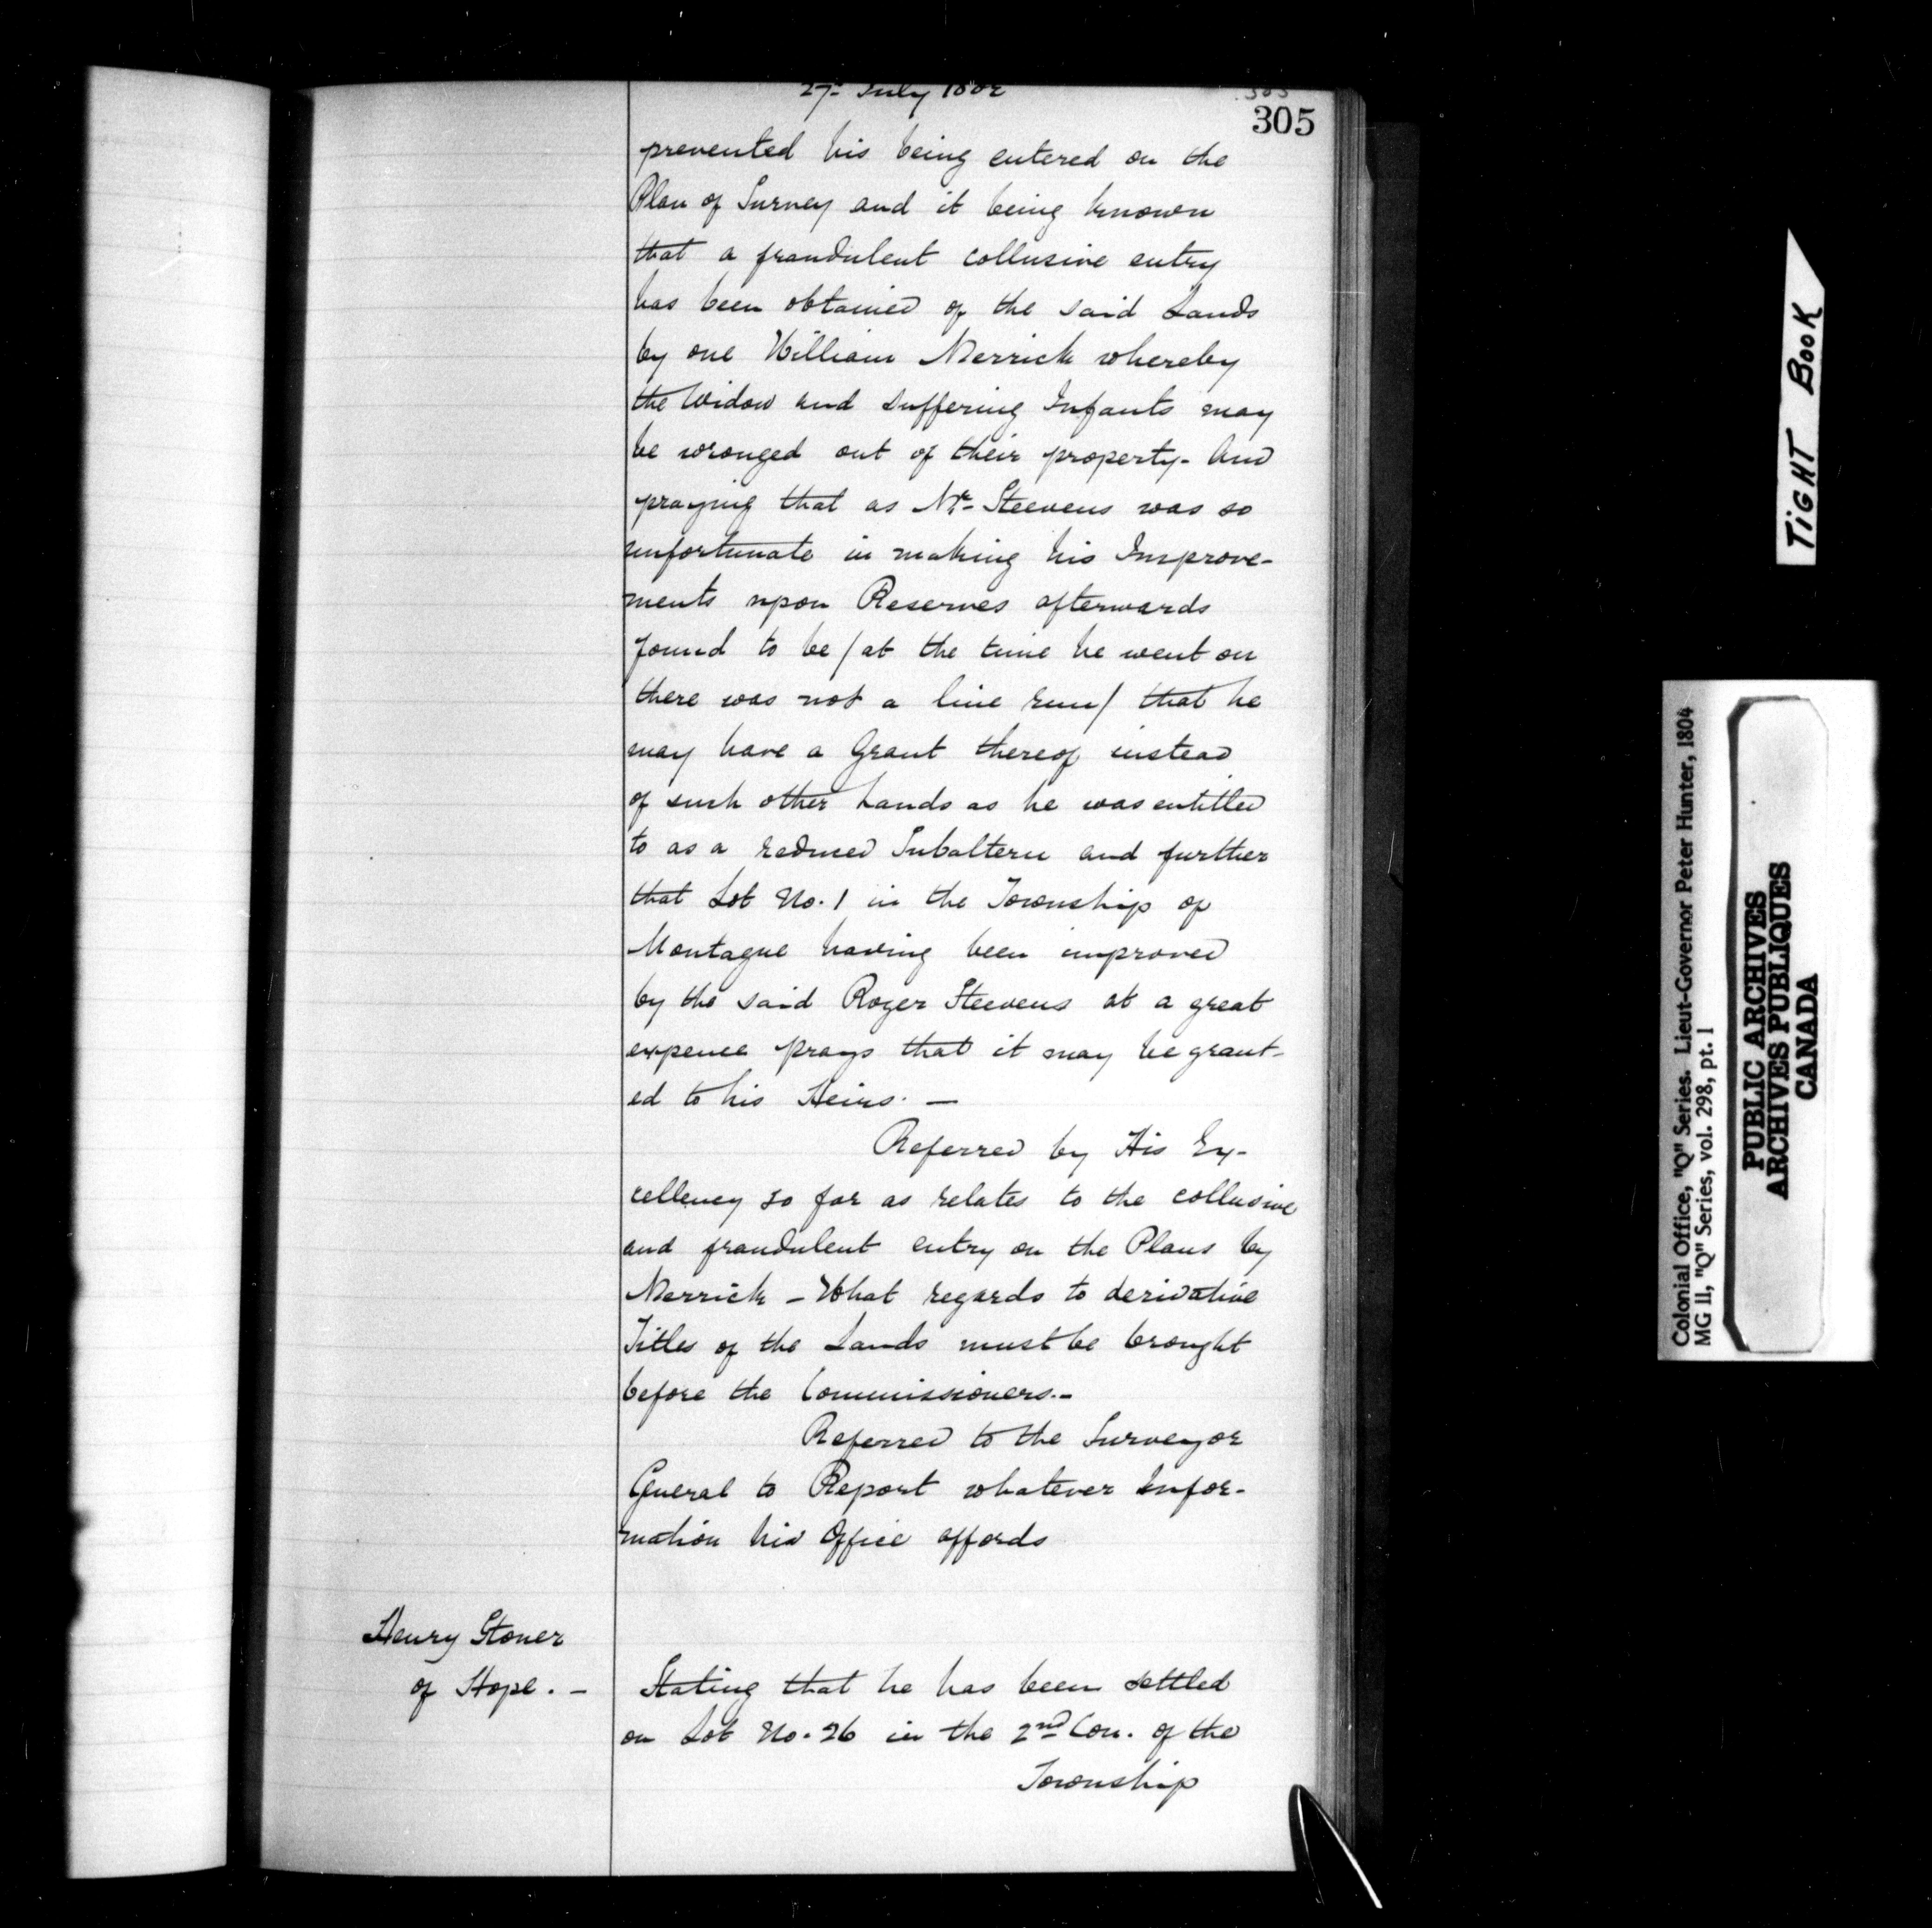 27th July 1802
305
305
prevented his being entered on the
Plan of Survey and it being known
that a fraudulent collusive entry
has been obtained of the said Lands
by one William Merrick whereby
the Widow and suffering Infants may
be wronged out of their property - And
praying that as Mr. Steevens was so
unfortunate in making his Improve-
ments upon Reserves afterwards
found to be / at the time he went on
there was not a line run / that he
may have a Grant thereof instead
of such other Lands as he was entitled
to as a reduced Subaltern and further
that Lot No. 1 in the Township of
Montague having been improved
by the said Roger Steevens at a great
expence prays that it may be grant-
ed to his Heirs. —
Referred by His Ex-
cellency so far as relates to the collusive
and fraudulent entry on the Plans by
Merrick - What regards to derivative
Titles of the Lands must be brought
before the Commissioners. -
Referred to the Surveyor
General to Report whatever Infor-
mation his Office affords
Henry Stoner
of Hope. -
Stating that he has been settled
on Lot No. 26 in the 2nd Con. of the
Township
TIGHT BOOK
Colonial Office, "Q" Series. Lieut-Governor Peter Hunter, 1804
MG 11, "Q" Series, vol. 298, pt. 1
PUBLIC ARCHIVES
ARCHIVES PUBLIQUES
CANADA